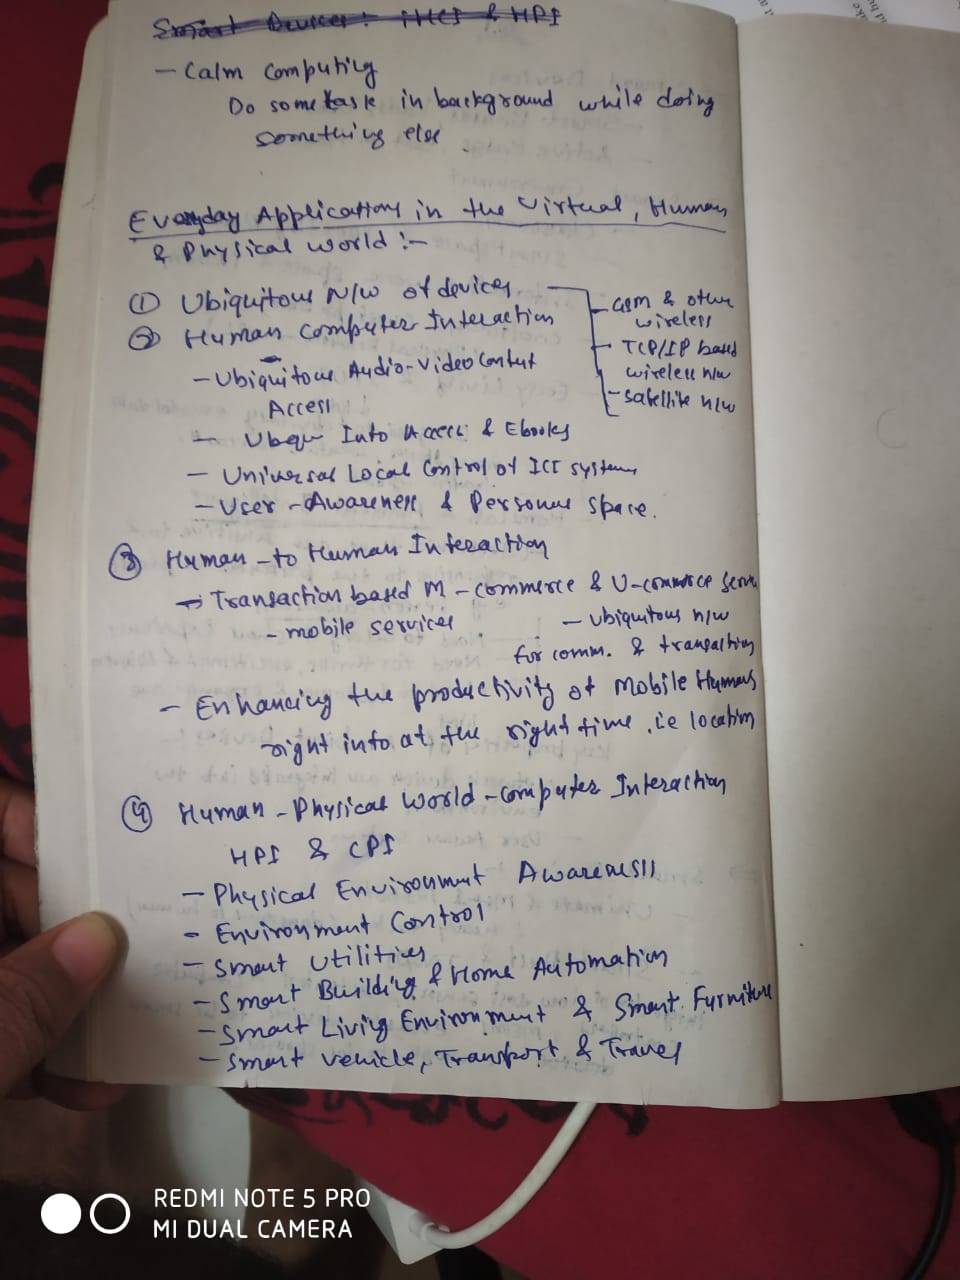 Smart Devices : iHCI & HPI
- Calm Computing
Do some task in background while doing
something else
Everyday Applications in the Virtual, Human
& Physical world :-
① Ubiquitous N/w of devices
- GSM & other
wireless
- TCP/IP based
wireless n/w
- satellite n/w
② Human Computer Interaction
- Ubiquitous Audio-Video Content
Access
- Ubiqu Info Access & Ebooks
- Universal Local Control of ICT systems
- User-Awareness & Personal Space.
③ Human-to Human Interaction
→ Transaction based M-commerce & U-commerce
- mobile services
- ubiquitous n/w
for comm. & transaction
- Enhancing the productivity of Mobile Humans
right info at the right time .i.e location
④ Human-Physical World-Computer Interaction
HPI & CPI
- Physical Environment Awareness
- Environment Control
- Smart Utilities
- Smart Building & Home Automation
- Smart Living Environment & Smart Furniture
- Smart vehicle, Transport & Travel
REDMI NOTE 5 PRO
MI DUAL CAMERA